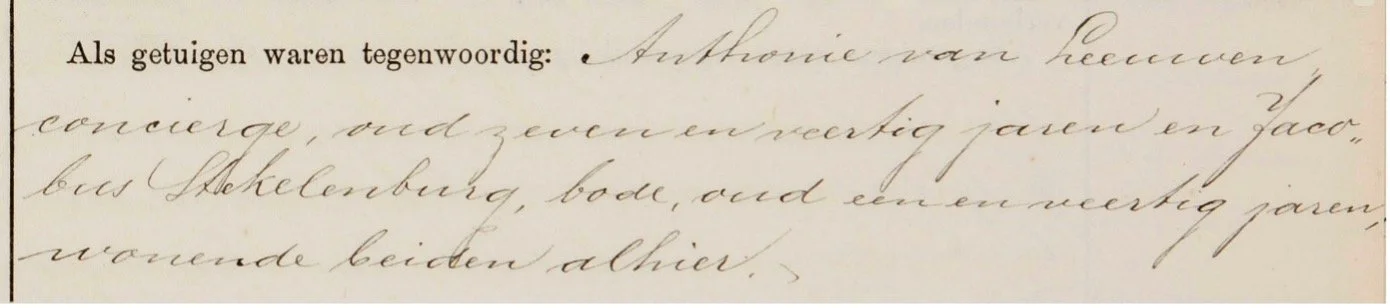 Als getuigen waren tegenwoordig: Anthonie van Leeuwen,
concierge, oud zeven en veertig jaren en Jaco„
bus Stekelenburg, bode, oud een en veertig jaren,
wonende beiden alhier.